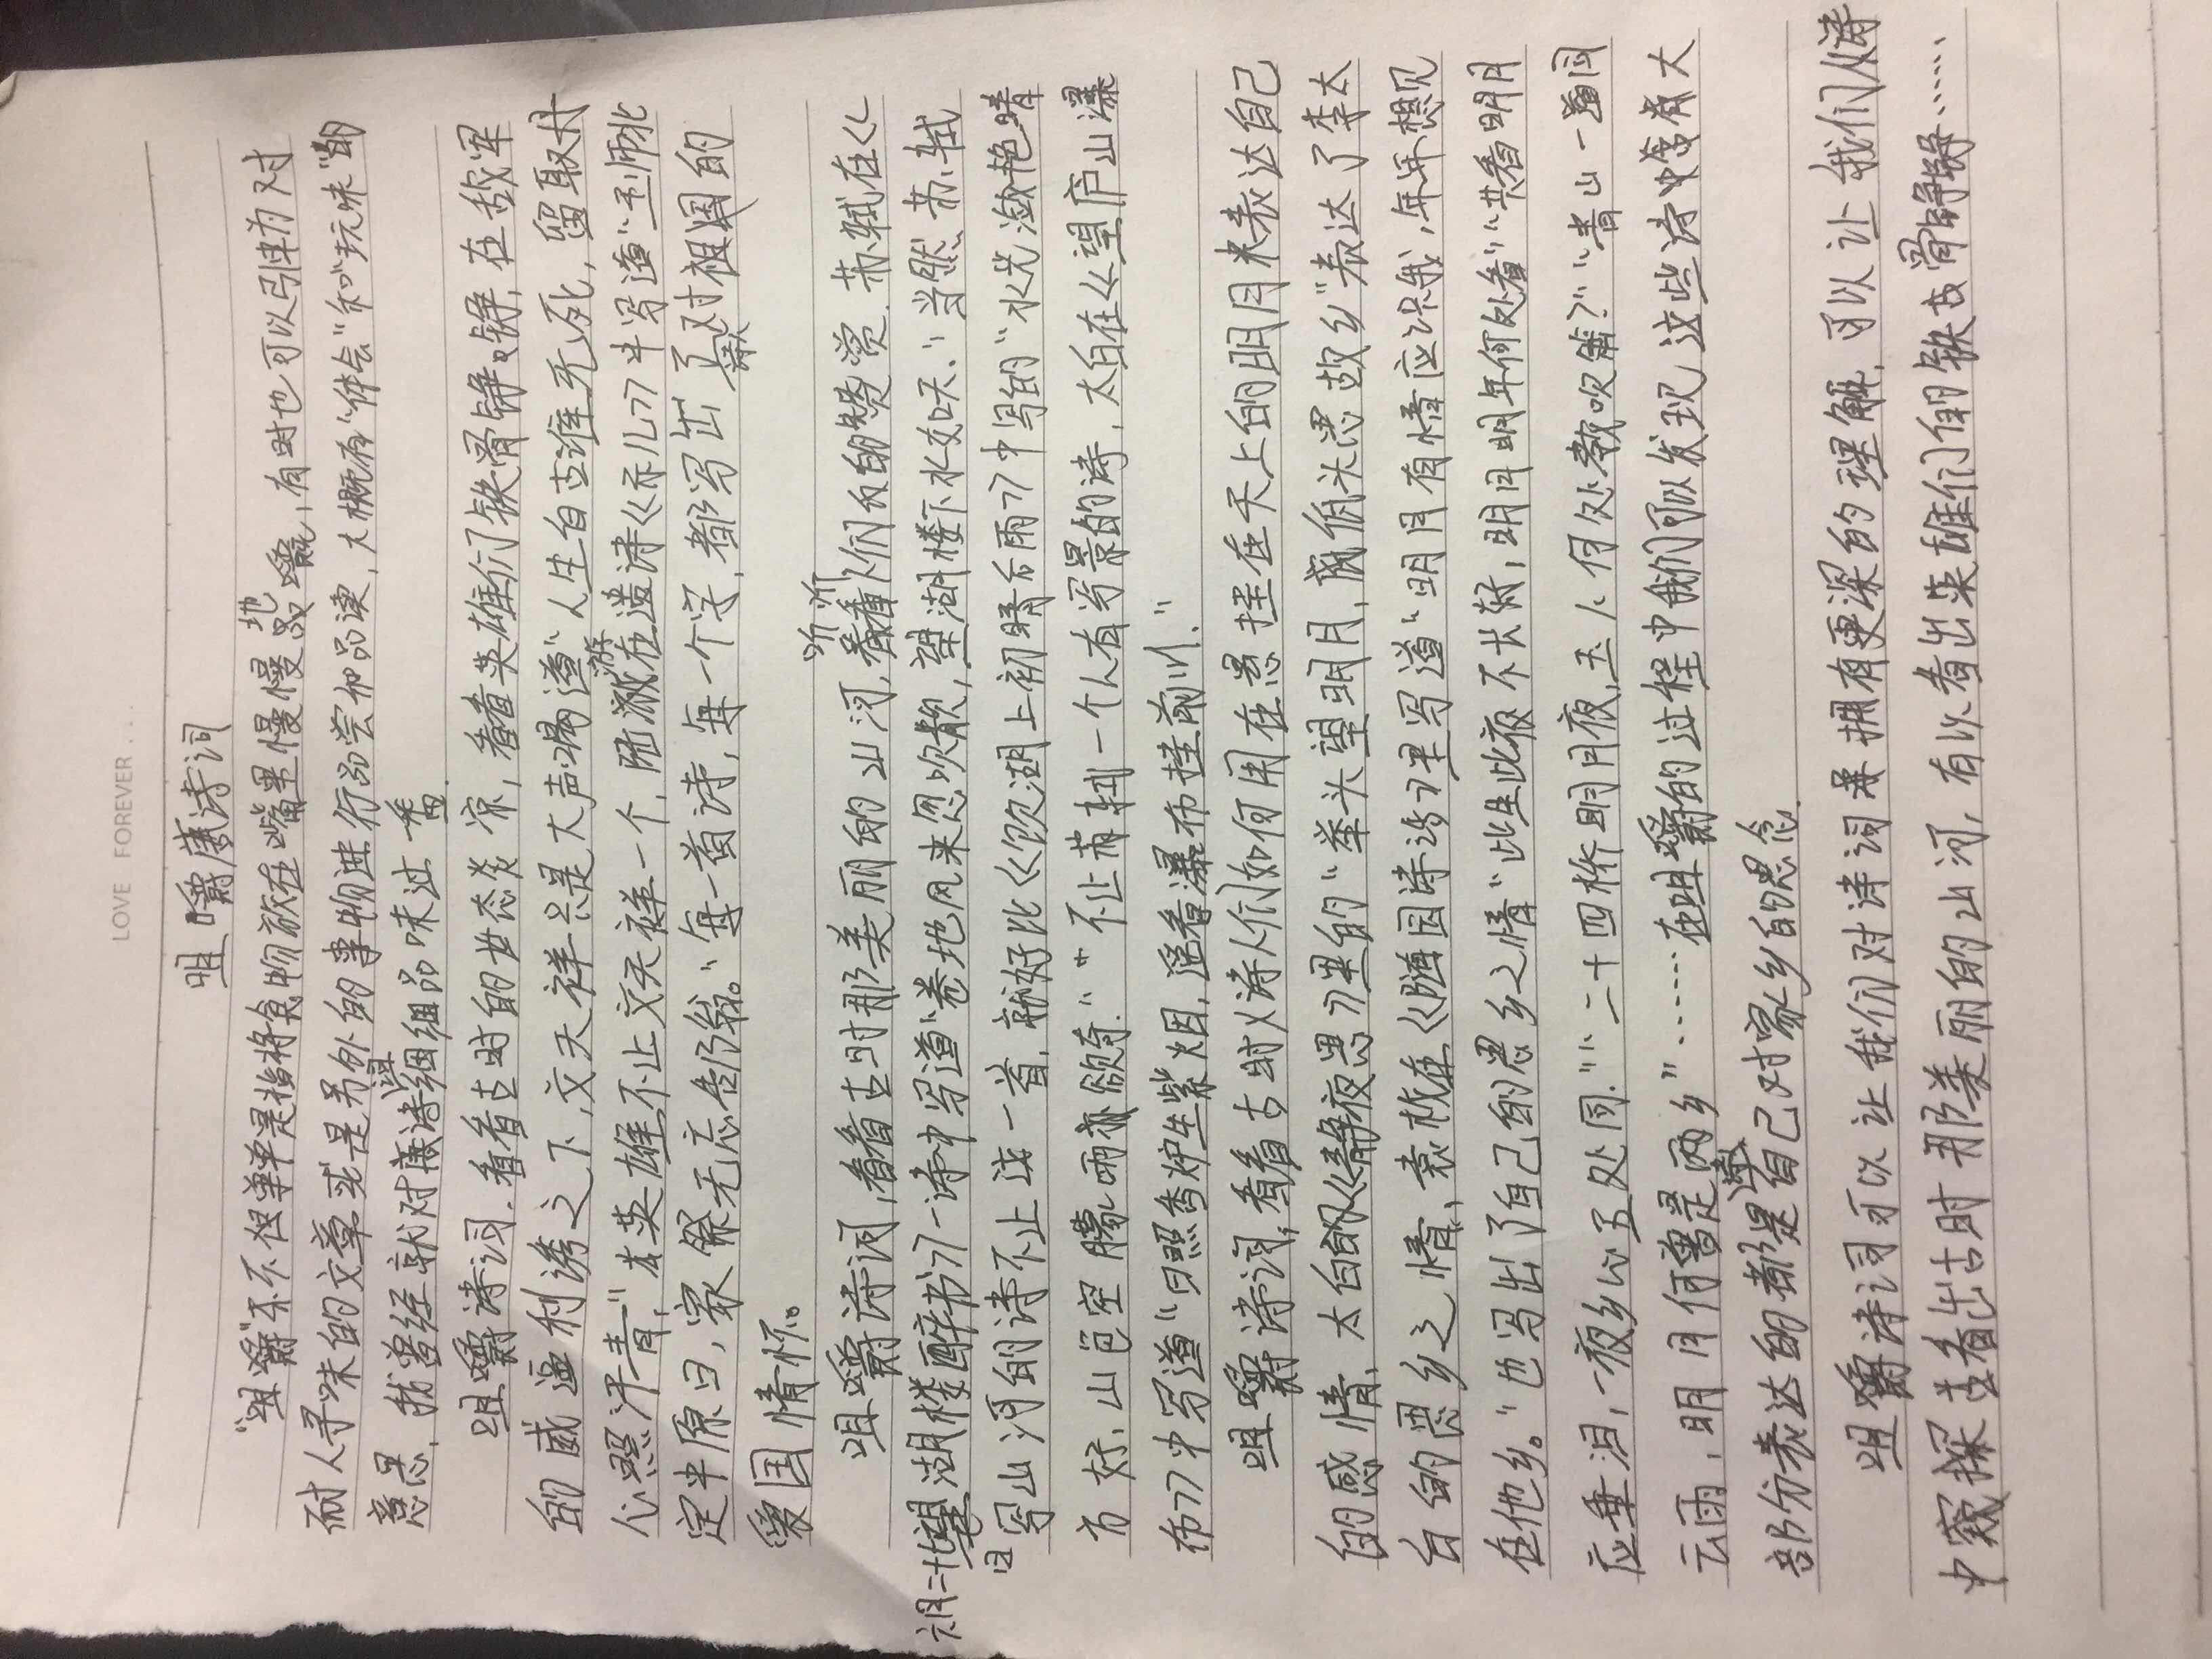 LOVE FOREVER....
咀嚼唐诗词
"咀嚼"不但单是指将食物放在嘴里慢慢地咀嚼,有时也可以引申为对
耐人寻味的文章或是另外的事物进行品尝和品读,大概有"体会"和"玩味"的
意思,我曾经就对唐诗词细细品味过一番.
咀嚼诗词.看看古时的世态炎凉,看看英雄们铁骨铮铮,在敌军
的威逼利诱之下,文天祥只是大声喝道"人生自古谁无死,留取丹
心照汗青",英雄不止文天祥一个,陆游在遗诗《示儿》中写道"王师北
定中原日,家祭无忘告乃翁。"每一首诗,每一个字,都写出了对祖国的
爱国情怀。
咀嚼诗词,看看古时那美丽的山河,听听人们的赞赏.苏轼在《
六月二十七日望湖楼醉书》一诗中写道"卷地风来忽吹散,望湖楼下水如天."当然苏轼
写山河的诗不止这一首,就好比《饮湖上初晴后雨》中写的"水光潋滟晴
方好,山色空朦雨亦欲奇.""不止苏轼一个人有写景的诗,太白在《望庐山瀑
布》中写道"日照香炉生紫烟,遥看瀑布挂前川."
咀嚼诗词,看看古时诗人们如何用在悬挂在天上的明月来表达自己
的感情,太白的《静夜思》里的"举头望明月,低头思故乡"表达了李太
白的思乡之情,袁枚在《随园诗话》里写道"明月有情应识我,年年想见
在他乡。"也写出了自己的思乡之情"此生此夜不长好,明月明年何处看""共看明月
应垂泪,一夜乡心五处同.""二十四桥明月夜,玉人何处教吹箫?""青山一道同
云雨,明月何曾是两乡"……在咀嚼的过程中我们可以发现,这些诗中含有大
部分表达的都是自己对家乡的思念.
咀嚼诗词可以让我们对诗词拥有更深的理解,可以让我们从诗
中窥探出古时那美丽的山河,有以看出英雄们的铁古骨铮铮……